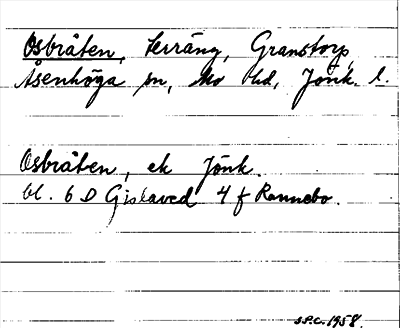 Osbråten, terräng, Granstorp,
Åsenhöga sn, Mo hd, Jönk. l.
Osbråten, ek Jönk.
bl. 6 D Gislaved 4 f Rannebo.
S.P.C. 1958.